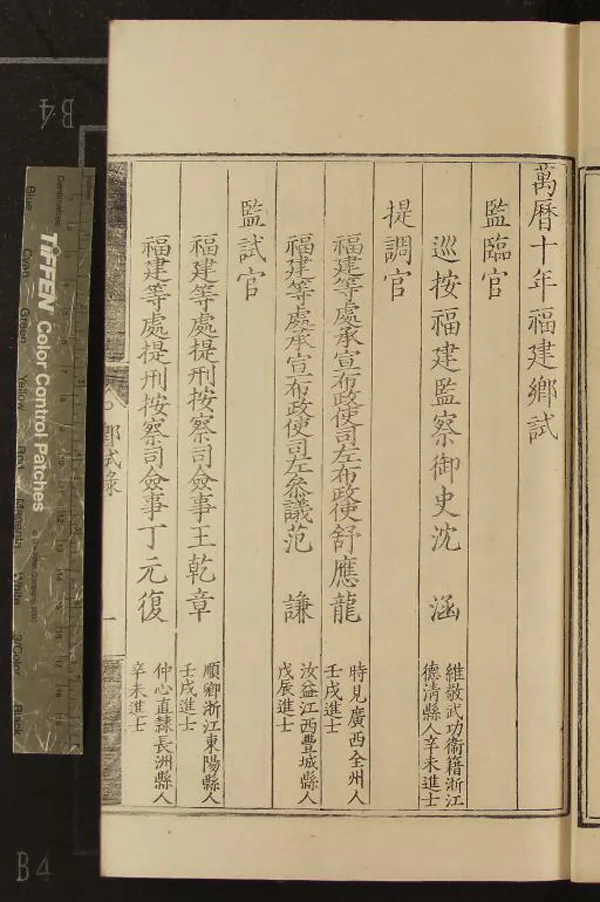 萬曆十年福建鄉試
監臨官
巡按福建監察御史沈　涵
維敬武功衞籍浙江
德清縣人辛未進士
提調官
福建等處承宣布政使司左布政使舒應龍
時見廣西全州人
壬戌進士
福建等處承宣布政使司左叅議范　謙
汝益江西豐城縣人
戊辰進士
監試官
福建等處提刑按察司僉事王乾章
順卿浙江東陽縣人
壬戌進士
福建等處提刑按察司僉事丁元復
仲心直隸長洲縣人
辛未進士
鄉試錄
一
B4
B4
TIFFEN Color Control Patches
Blue
Cyan
Green
Yellow
Red
Magenta
White
3/Color
Black
Centimetres